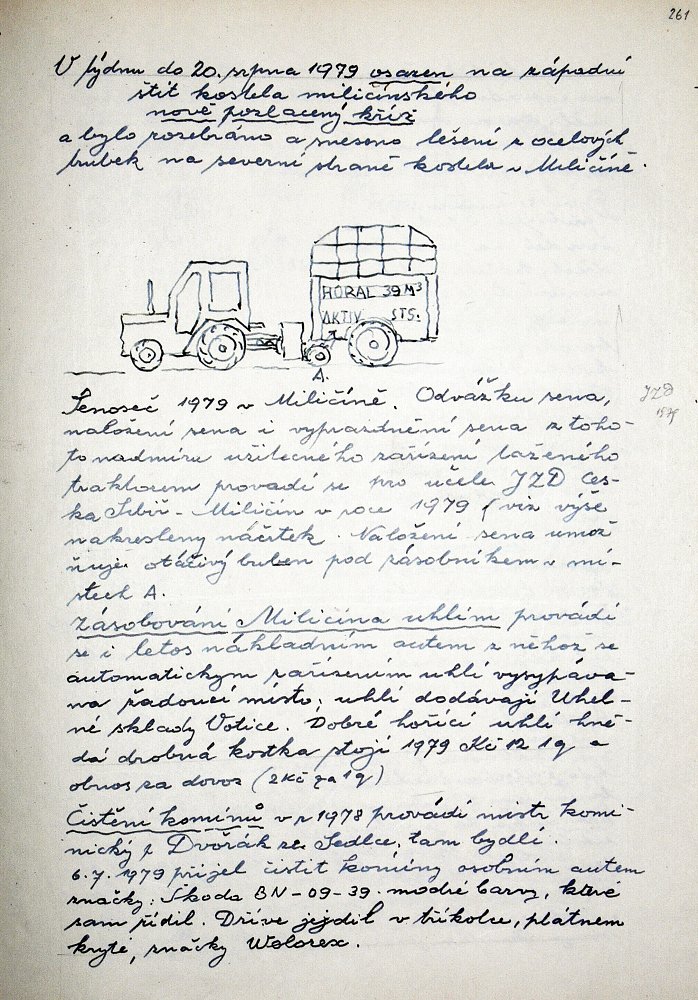 261
V týdnu do 20. srpna 1979 osazen na západní
štít kostela miličínského
nově pozlacený kříž
a bylo rozebráno a sneseno lešení z ocelových
trubek na severní straně kostela v Miličíně.
HORAL 39 M³
AKTIV STS.
A.
Senoseč 1979 v Miličíně. Odvážku sena,
JZD
1979
naložení sena i vyprazdnění sena z toho-
to nadmíru užitečného zařízení taženého
traktorem provádí se pro účele JZD Čes-
ká Sibiř - Miličín v roce 1979 (viz výše
nakreslený náčrtek. Naložení sena umož
ňuje otáčivý buben pod zásobníkem v mí-
stech A.
Zásobování Miličína uhlím provádí
se i letos nákladním autem z něhož se
automatickým zařízením uhlí vysypává
na žádoucí místo; uhlí dodávají Uhel-
né sklady Votice. Dobré hořící uhlí hně-
dá drobná kostka stojí 1979 Kč 12 1q a
obnos za dovoz (2 Kč za 1q)
Čištění komínů v r 1978 provádí mistr komi-
nický Dvořák ze Sedlce, tam bydlí.
6.7.1979 přijel čistit komíny osobním autem
značky: Škoda BN-09-39 modré barvy, které
sam řídil. Dříve jezdil v tříkolce, plátnem
kryté, značky Welorex.